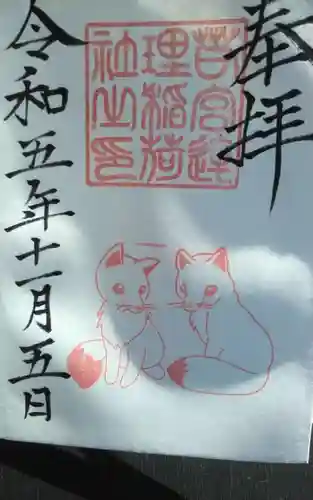 奉拝
苔宮達
理稲荷
社之印
令和五年十一月五日